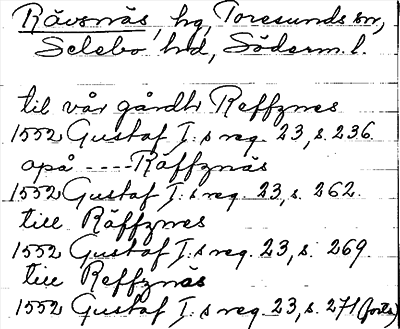 Rävsnäs, hg, Toresunds sn,
Selebo hd, Söderm. l.
til vår gårdh Reffznes
1552 Gustaf I:s reg. 23, s. 236.
opå ---- Räffznäs
1552 Gustaf I:s reg. 23, s. 262.
till Räffznes
1552 Gustaf I:s reg. 23, s. 269.
till Reffznäs
1552 Gustaf I:s reg. 23, s. 271 (forts)